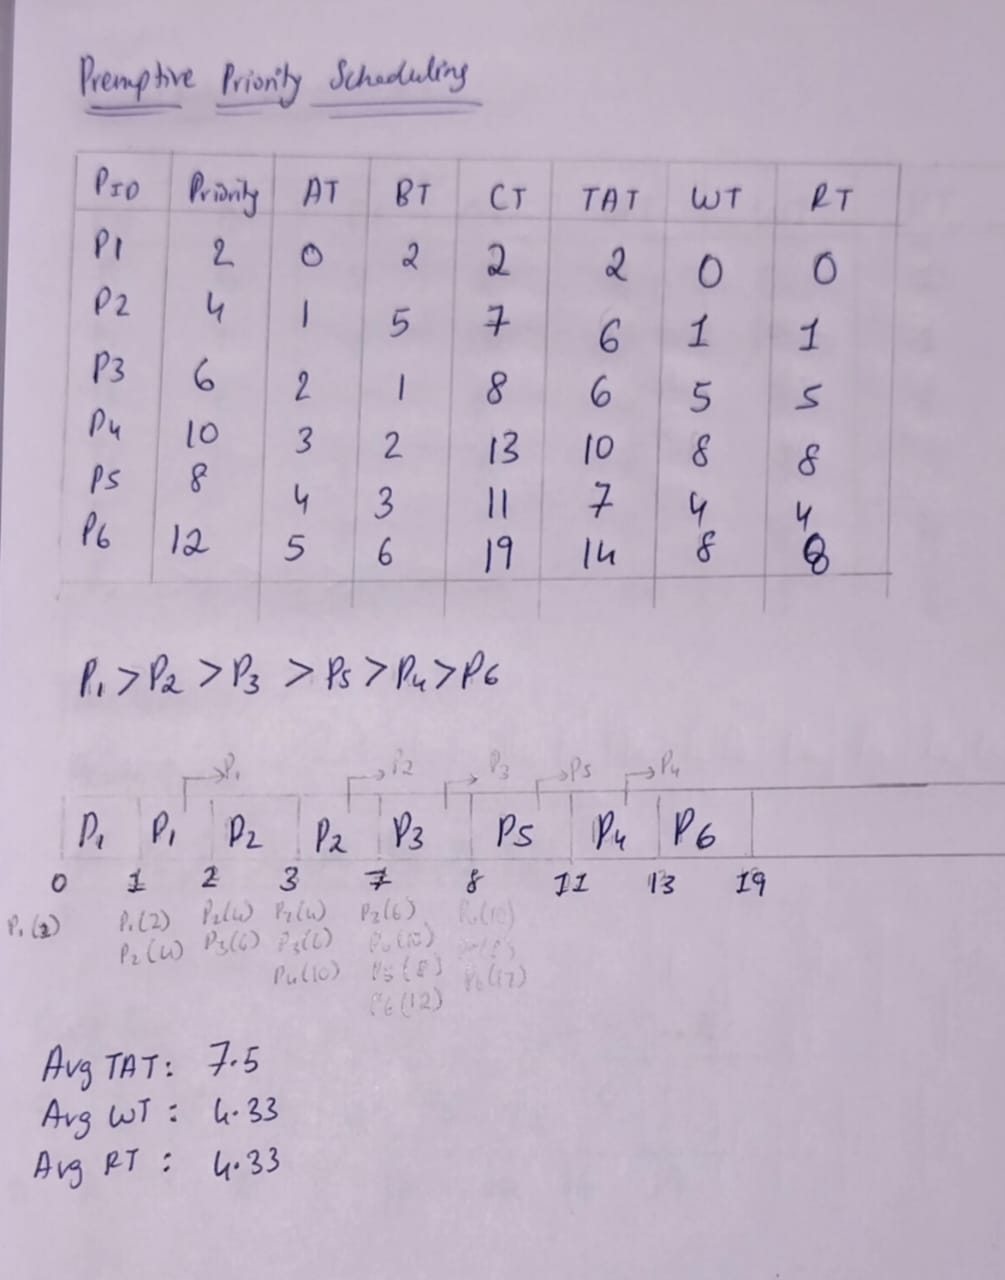 Premptive Priority Scheduling
PID Priority AT BT CT TAT WT RT
P1 2 0 2 2 2 0 0
P2 4 1 5 7 6 1 1
P3 6 2 1 8 6 5 5
P4 10 3 2 13 10 8 8
P5 8 4 3 11 7 4 4
P6 12 5 6 19 14 8 8
P1 > P2 > P3 > P5 > P4 > P6
P1 P2 P3 P5 P4
P1 P1 P2 P2 P3 P5 P4 P6
0 1 2 3 7 8 11 13 19
P1(2) P1(2) P2(4) P2(4) P2(6)
P2(4) P3(6) P3(6) P4(10)
P4(10) P5(8) P6(12)
P6(12)
Avg TAT: 7.5
Avg WT : 4.33
Avg RT : 4.33